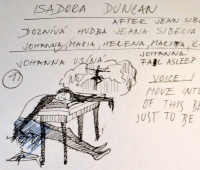 ISADORA DUNCAN
AFTER JEAN SIBE
DOZNÍVÁ HUDBA JEANA SIBELIA
JOHANNA, MARIA, HELENA, MARTA, K
JOHANNA USÍNÁ
JOHANNA
FALL ASLEEP
1)
VOICE
MOVE INTO
OF THIS BE
JUST TO BE